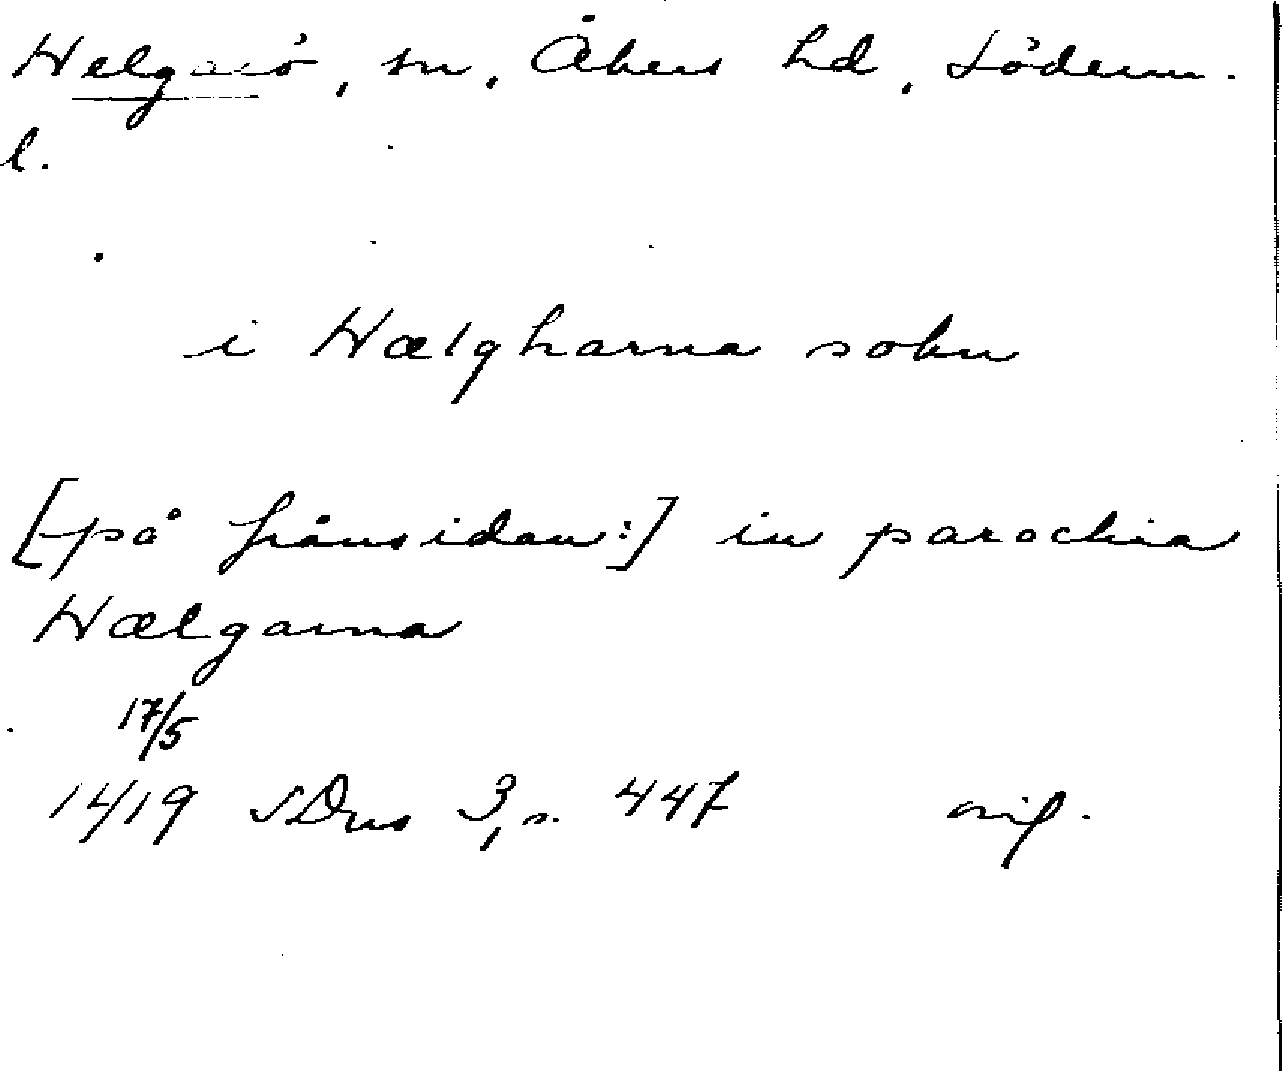 Helgarö, sn, Åkers hd, Söderm.
l.
i Hælgharna sokn
[på frånsidan:] in parochia
Hælgarna
17/5
1419 SDns 3, s. 447 orig.